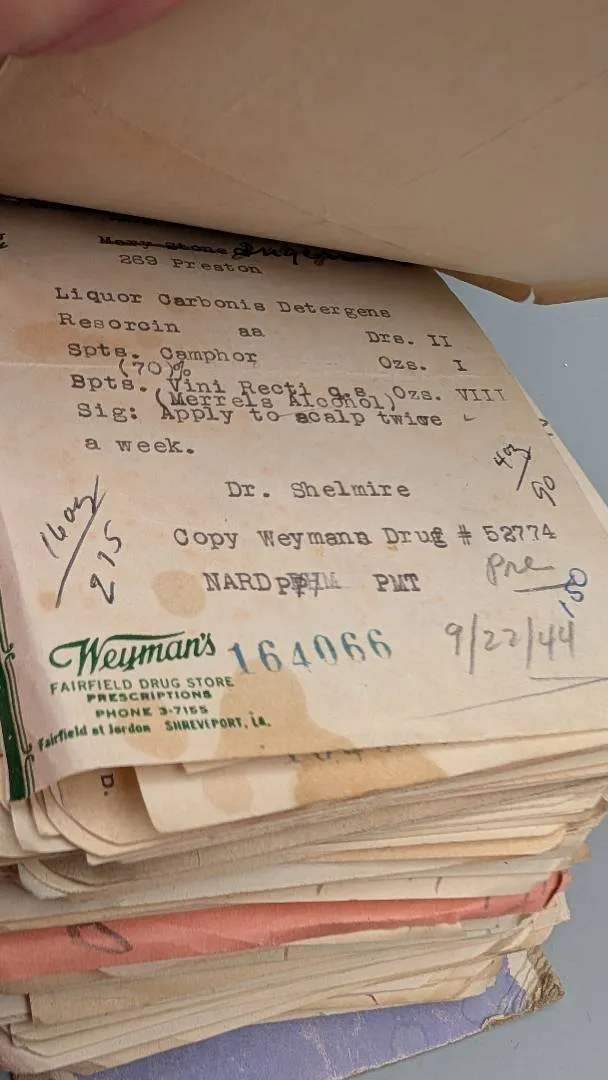 Mary Stone
269 Preston
Liquor Carbonis Detergens
Resorcin aa Drs. II
Spts. Camphor Ozs. I
(70)%
Spts. Vini Recti q.s Ozs. VIII
(Merrels Alcohol)
Sig: Apply to scalp twice
a week.
4oz
90
Dr. Shelmire
16oz
275
Copy Weymans Drug # 52774
Pre
NARD PMT
150
9/22/44
Weyman's 164066
FAIRFIELD DRUG STORE
PRESCRIPTIONS
PHONE 3-7155
Fairfield at Jordon SHREVEPORT, LA.
D.